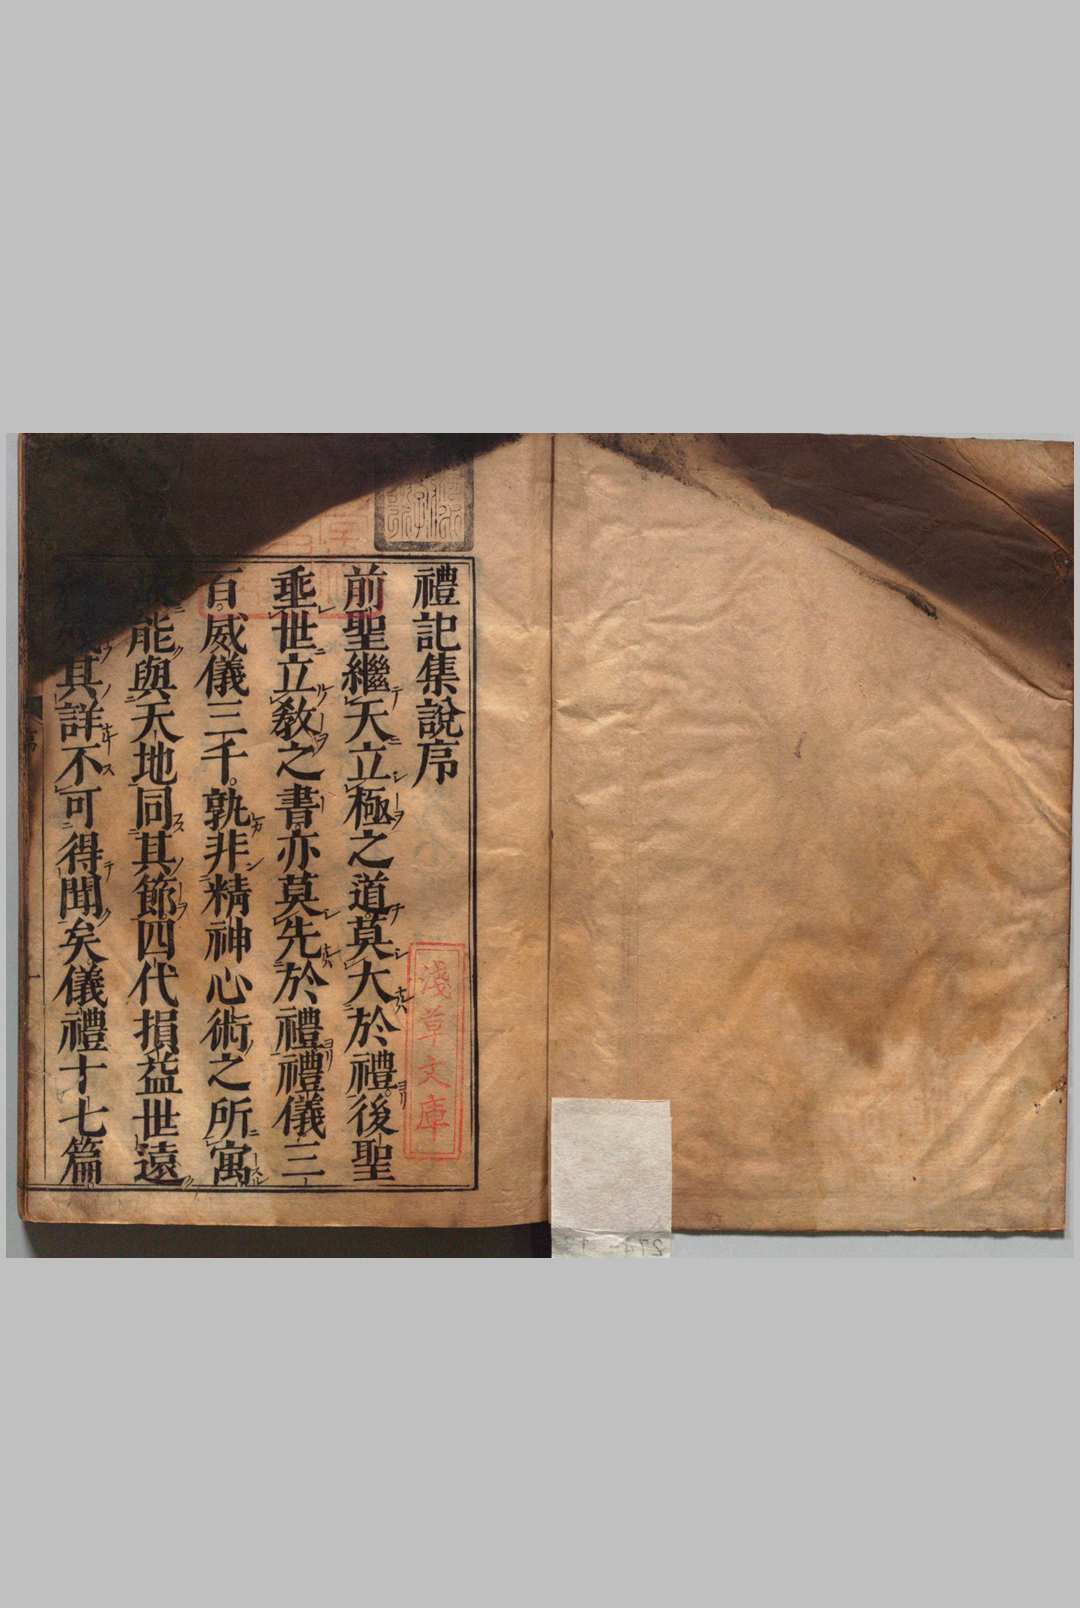 禮記集說序
前聖繼天立極之道莫大於禮後聖
垂世立敎之書亦莫先於禮禮儀三
百威儀三千孰非精神心術之所寓
能與天地同其節四代損益世遠
其詳不可得聞矣儀禮十七篇
淺草文庫
序